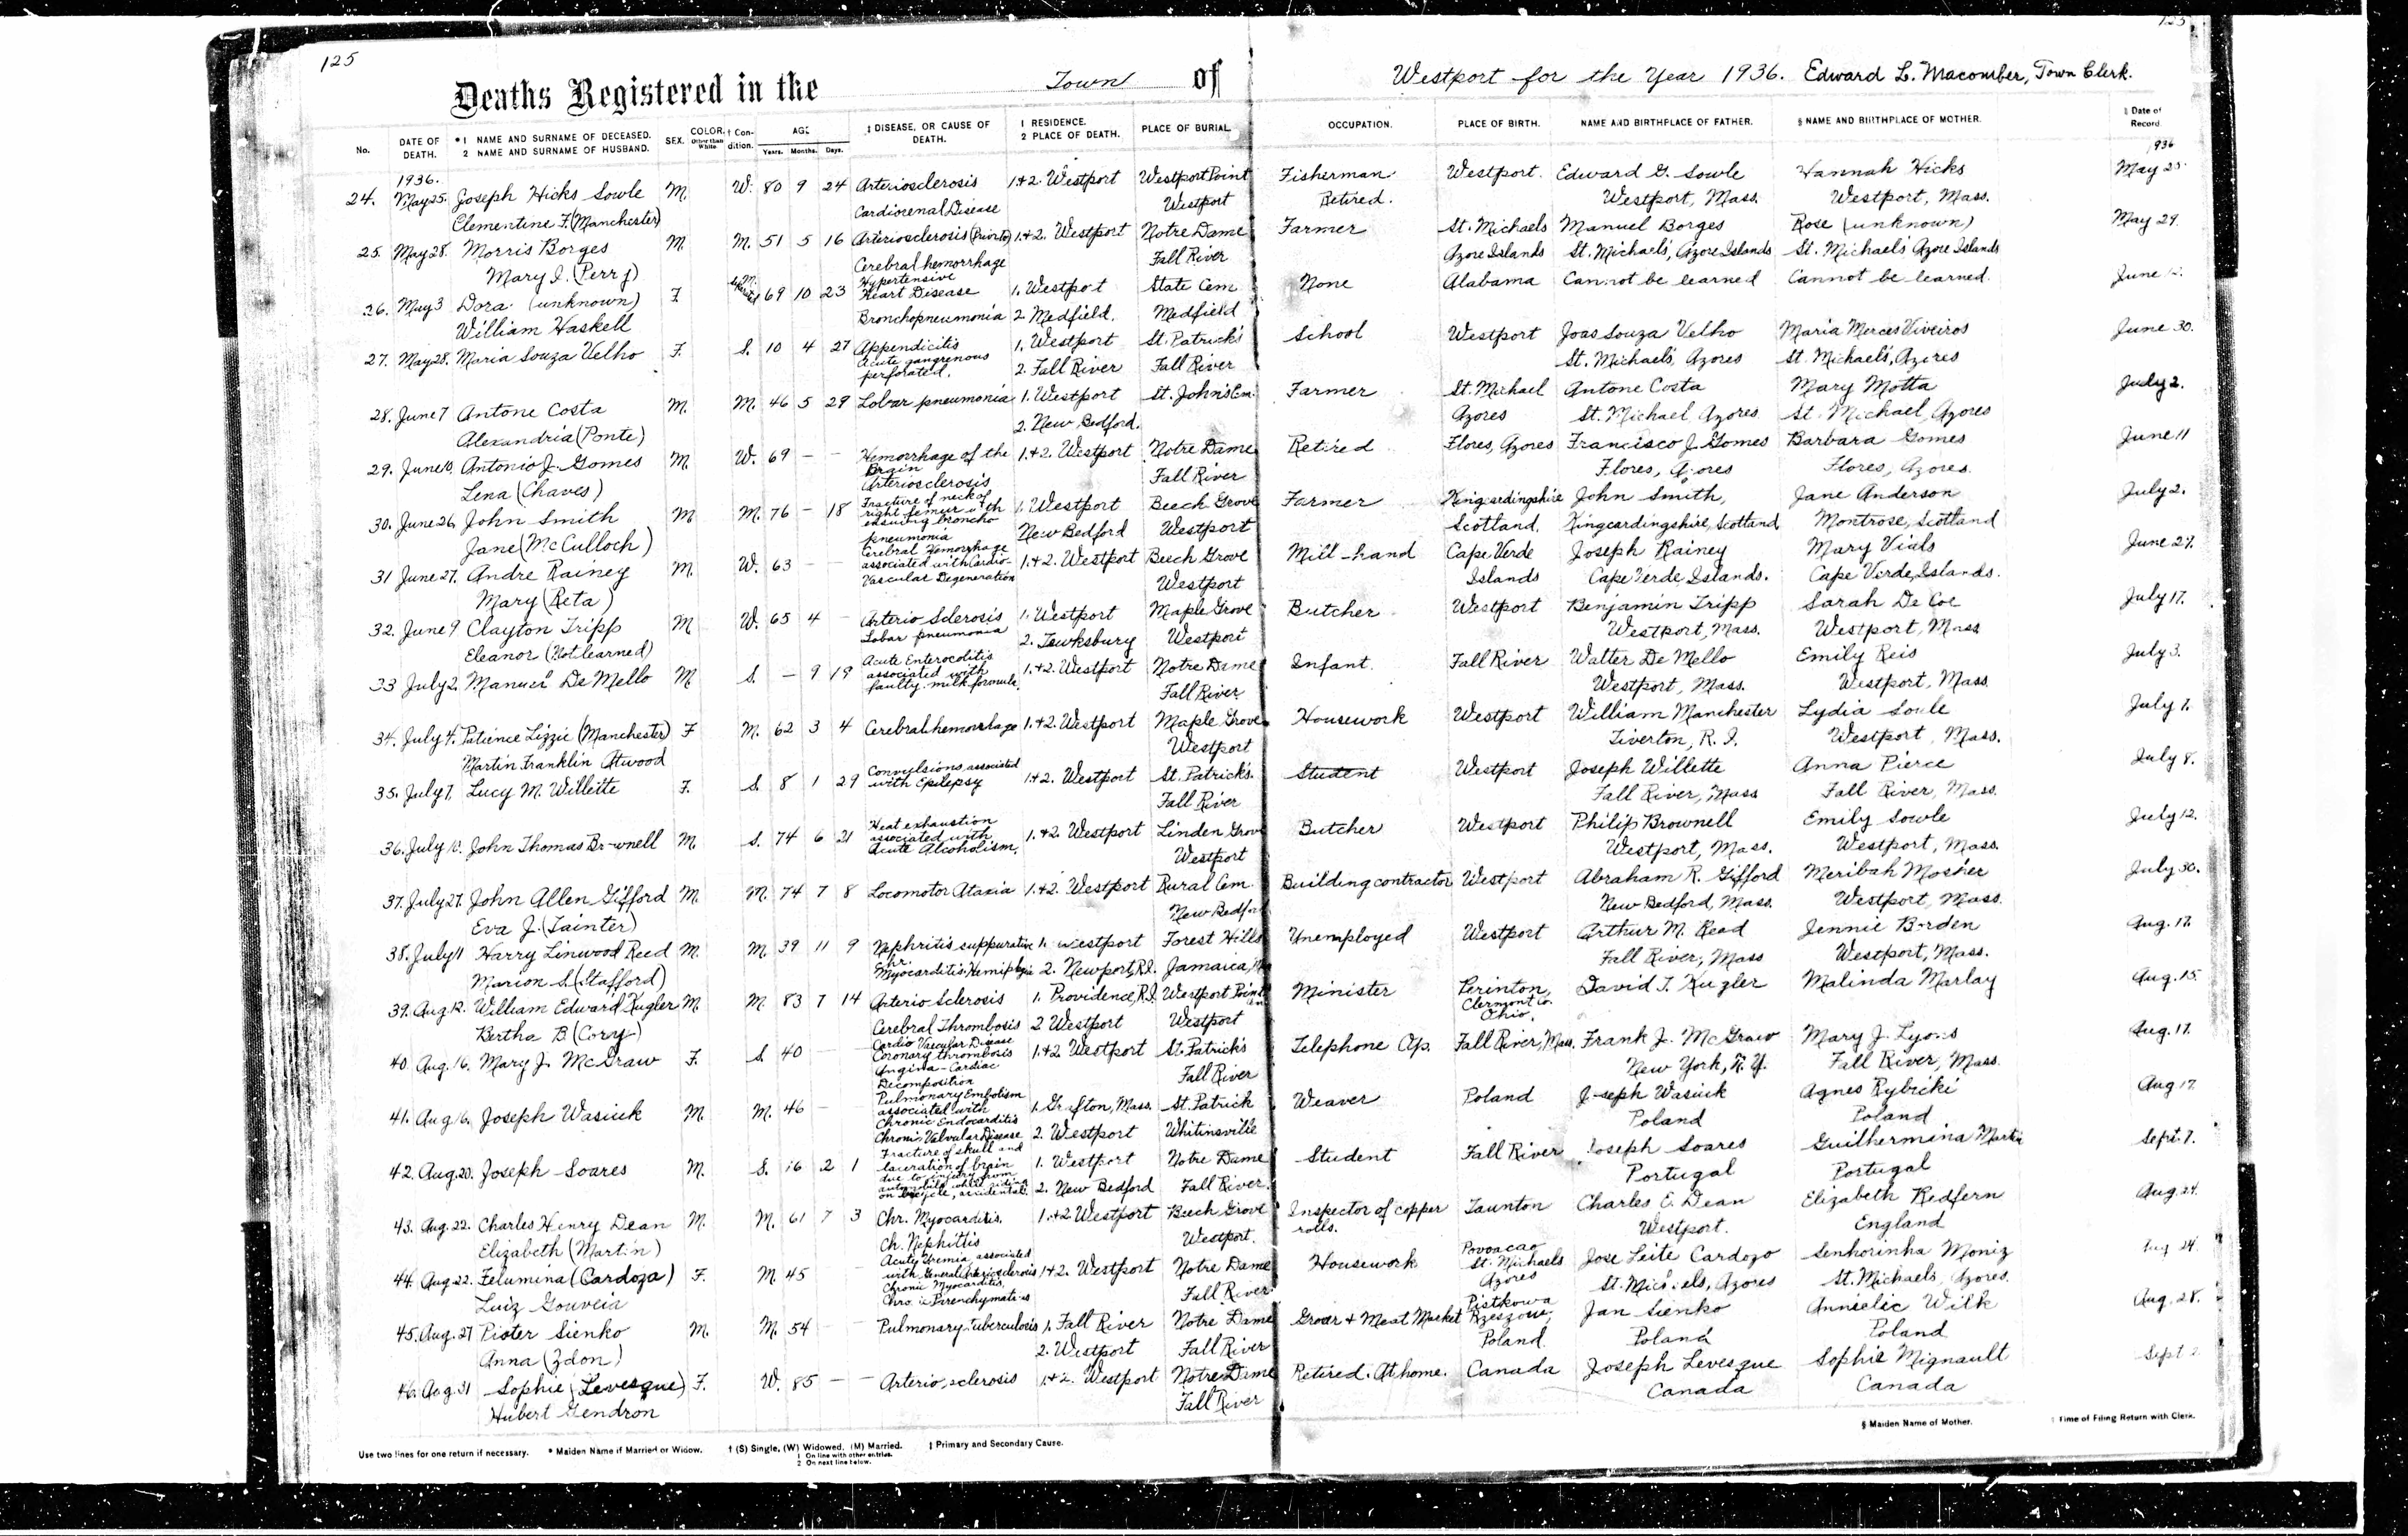 125
125
Deaths Registered in the Town of Westport for the Year 1936. Edward L. Macomber, Town Clerk.
No. DATE OF DEATH. *1 NAME AND SURNAME OF DECEASED. 2 NAME AND SURNAME OF HUSBAND. SEX. COLOR. Other than White † Condition. AGE Years. Months. Days. ‡ DISEASE, OR CAUSE OF DEATH. 1 RESIDENCE. 2 PLACE OF DEATH. PLACE OF BURIAL. OCCUPATION. PLACE OF BIRTH. NAME AND BIRTHPLACE OF FATHER. § NAME AND BIRTHPLACE OF MOTHER. ‖ Date of Record.
1936. 1936
24. May 25. Joseph Hicks Sowle M. W. 80 9 24 Arteriosclerosis 1+2. Westport Westport Point Fisherman Westport. Edward G. Sowle Hannah Hicks May 25
Clementine F. (Manchester) Cardiorenal Disease Westport Retired. Westport, Mass. Westport, Mass.
25. May 28. Morris Borges M. M. 51 5 16 Arteriosclerosis 1+2. Westport Notre Dame Farmer St. Michaels Manuel Borges Rose (unknown) May 29.
Mary I. (Perry) Cerebral hemorrhage Fall River Azore Islands St. Michaels, Azore Islands St. Michaels Azore Islands
26. May 3 Dora (unknown) F 69 10 23 Hypertensive Heart Disease 1. Westport State Cem None Alabama Cannot be learned Cannot be learned. June
William Haskell Bronchopneumonia 2. Medfield. Medfield
27. May 28. Maria Souza Velho F. S. 10 4 27 Appendicitis 1. Westport St. Patrick's School Westport Joas Souza Velho Maria Merces Viveiros June 30.
Acute gangrenous perforated. 2. Fall River Fall River St. Michaels, Azores St. Michaels, Azores
28. June 7 Antone Costa M. M. 46 5 29 Lobar pneumonia 1. Westport St. John's Cem. Farmer St. Michael Antone Costa Mary Motta July 2.
Alexandria (Ponte) 2. New Bedford. Azores St. Michael Azores St. Michael, Azores
29. June 10. Antonio J. Gomes M. W. 69 – – Hemorrhage of the Brain 1.+2. Westport Notre Dame Retired Flores, Azores Francisco J. Gomes Barbara Gomes June 11
Lena (Chaves) Arteriosclerosis Fall River Flores, Azores Flores, Azores.
30. June 26, John Smith M M. 76 – 18 Fracture of neck of right femur with ensuing broncho pneumonia 1. Westport Beech Grove Farmer Kingcardingshire John Smith, Jane Anderson July 2.
Jane (McCulloch) New Bedford Westport Scotland, Kingcardingshire, Scotland Montrose, Scotland
31 June 27. Andre Rainey M. W. 63 – – Cerebral Hemorrhage associated with Cardio-Vascular Degeneration 1.+2. Westport Beech Grove Mill-hand Cape Verde Joseph Rainey Mary Vials June 27.
Mary (Reta) Westport Islands Cape Verde Islands. Cape Verde Islands.
32. June 9 Clayton Tripp M W. 65 4 – Arterio Sclerosis 1. Westport Maple Grove Butcher Westport Benjamin Tripp Sarah De Coe July 17.
Eleanor (Not learned) Lobar pneumonia 2. Tewksbury Westport Westport, Mass. Westport, Mass
33 July 2. Manuel De Mello M. S. – 9 19 Acute Enterocolitis associated with faulty milk formula. 1.+2. Westport Notre Dame Infant. Fall River Walter De Mello Emily Reis July 3.
Fall River Westport, Mass. Westport, Mass.
34. July 4. Patience Lizzie (Manchester) F M. 62 3 4 Cerebral hemorrhage 1.+2. Westport Maple Grove Housework Westport William Manchester Lydia Soule July 7.
Martin Franklin Atwood Westport Tiverton, R.I. Westport, Mass.
35. July 7, Lucy M. Willette F. S. 8 1 29 Convulsions associated with Epilepsy 1+2. Westport St. Patrick's Student Westport Joseph Willette Anna Pierce July 8.
Fall River Fall River, Mass Fall River, Mass.
36. July 10. John Thomas Brownell M. S. 74 6 21 Heat exhaustion associated with Acute Alcoholism. 1.+2. Westport Linden Grove Butcher Westport Philip Brownell Emily Sowle July 12.
Westport Westport, Mass. Westport, Mass.
37. July 27. John Allen Gifford M. M. 74 7 8 Locomotor Ataxia 1.+2. Westport Rural Cem. Building contractor Westport Abraham R. Gifford Meribah Mosher July 30.
Eva J. (Tainter) New Bedford New Bedford, Mass. Westport, Mass.
38. July 11 Harry Linwood Reed M. M. 39 11 9 Nephritis suppurative 1. Westport Forest Hills Unemployed Westport Arthur M. Read Jennie Borden Aug. 17.
Marion S. (Stafford) Chr. Myocarditis, Hemiplegia 2. Newport, R.I. Jamaica, Fall River, Mass Westport, Mass.
39. Aug. 12. William Edward Kugler M. M. 83 7 14 Arterio Sclerosis 1. Providence, R.I. Westport Point Minister Perinton, Clermont Co. Ohio. David T. Kugler Malinda Marlay Aug. 15.
Bertha B. (Cory) Cerebral Thrombosis 2 Westport Westport
40 Aug. 16. Mary J. McGraw F. S. 40 – Cardio Vascular Disease Coronary thrombosis Angina-Cardiac Decomposition 1.+2. Westport St. Patrick's Telephone Op. Fall River, Mass. Frank J. McGraw Mary J. Lyons Aug. 17.
Fall River New York, N.Y. Fall River, Mass.
41. Aug 16. Joseph Wasiuk M. M. 46 – Pulmonary Embolism associated with Chronic Endocarditis 1. Grafton, Mass. St. Patrick Weaver Poland Joseph Wasiuk Agnes Rybicki Aug 17.
Chronic Valvular Disease 2. Westport Whitinsville Poland Poland
42. Aug. 20. Joseph Soares M. S. 16 2 1 Fracture of skull and laceration of brain due to injury from automobile while riding on bicycle, accidental. 1. Westport Notre Dame Student Fall River Joseph Soares Guilhermina Martin Sept. 7.
2. New Bedford Fall River. Portugal Portugal
43. Aug. 22. Charles Henry Dean M. M. 61 7 3 Chr. Myocarditis. 1.+2 Westport Beech Grove Inspector of copper rolls. Taunton Charles E. Dean Elizabeth Redfern Aug. 24.
Elizabeth (Martin) Ch. Nephittis Westport. Westport. England
44. Aug. 22. Felumina (Cardoza) F. M. 45 – Acute Uremia associated with General Arteriosclerosis Chronic Myocarditis, 1+2. Westport Notre Dame Housework Povoacao St. Michaels Azores Jose Leite Cardozo Senhorinha Moniz Aug 24.
Luiz Gouveia Fall River St. Michaels, Azores St. Michaels, Azores.
45. Aug. 27 Pioter Sienko M. M. 54 – – Pulmonary Tuberculosis 1. Fall River Notre Dame Grocer + Meat Market Pistkowa Rzeszow, Jan Sienko Annielie Wilk Aug. 28.
Anna (Zdon) 2. Westport Fall River Poland Poland Poland
46. Aug. 31 Sophie (Levesque) F. W. 85 – – Arterio, sclerosis 1+2. Westport Notre Dame Retired. At home. Canada Joseph Levesque Sophie Mignault Sept 2
Hubert Gendron Fall River Canada Canada
Use two lines for one return if necessary. * Maiden Name if Married or Widow. † (S) Single, (W) Widowed, (M) Married. ‡ Primary and Secondary Cause. § Maiden Name of Mother. ‖ Time of Filing Return with Clerk.
1 On line with other entries.
2 On next line below.